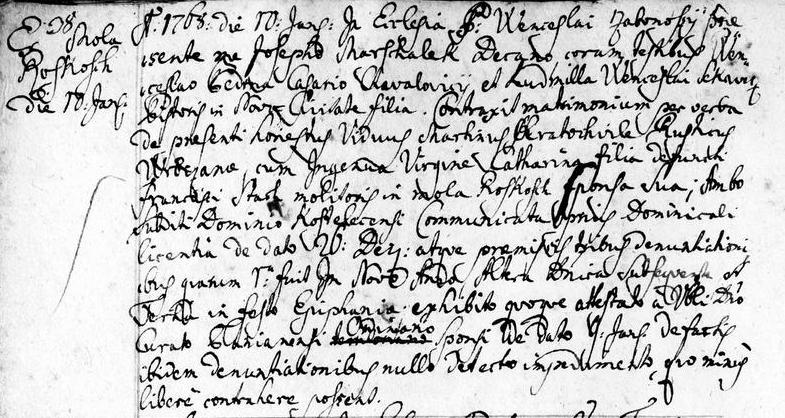 E 38 Mola
Koskosch
die 10. Janrÿ
A. 1768: die 10: Janrÿ In Ecclesia S. Wenceslai Zabonossÿ prae
sente me Josepho Marschalek Decano, coram testibus Wen
ceslao Casario et Ludmilla Wenceslai
Pistoris in Nova Civitate filia. Contraxit matrimonium per verba
de presenti honestus Viduus Martinus Kratochvile Rusticus
cum Ingenua Virgine Catharina filia defuncti
Francisci molitoris in mola Koskosch sponsa sua; Ambo
subditi Dominio Kostelecensi Communicata Dominicali
licentia de dato atque premissis tribus denuntiationi
bus quarum 1ma fuit In Altera subsequente et
Tertia in festo Epiphania exhibito quoque attestato a
Curato Planianensi Ordinario sponsi de dato 9: Janrÿ de factis
ibidem denuntiationibus nullo detecto impedimento, quo minus
libere contrahere possent.